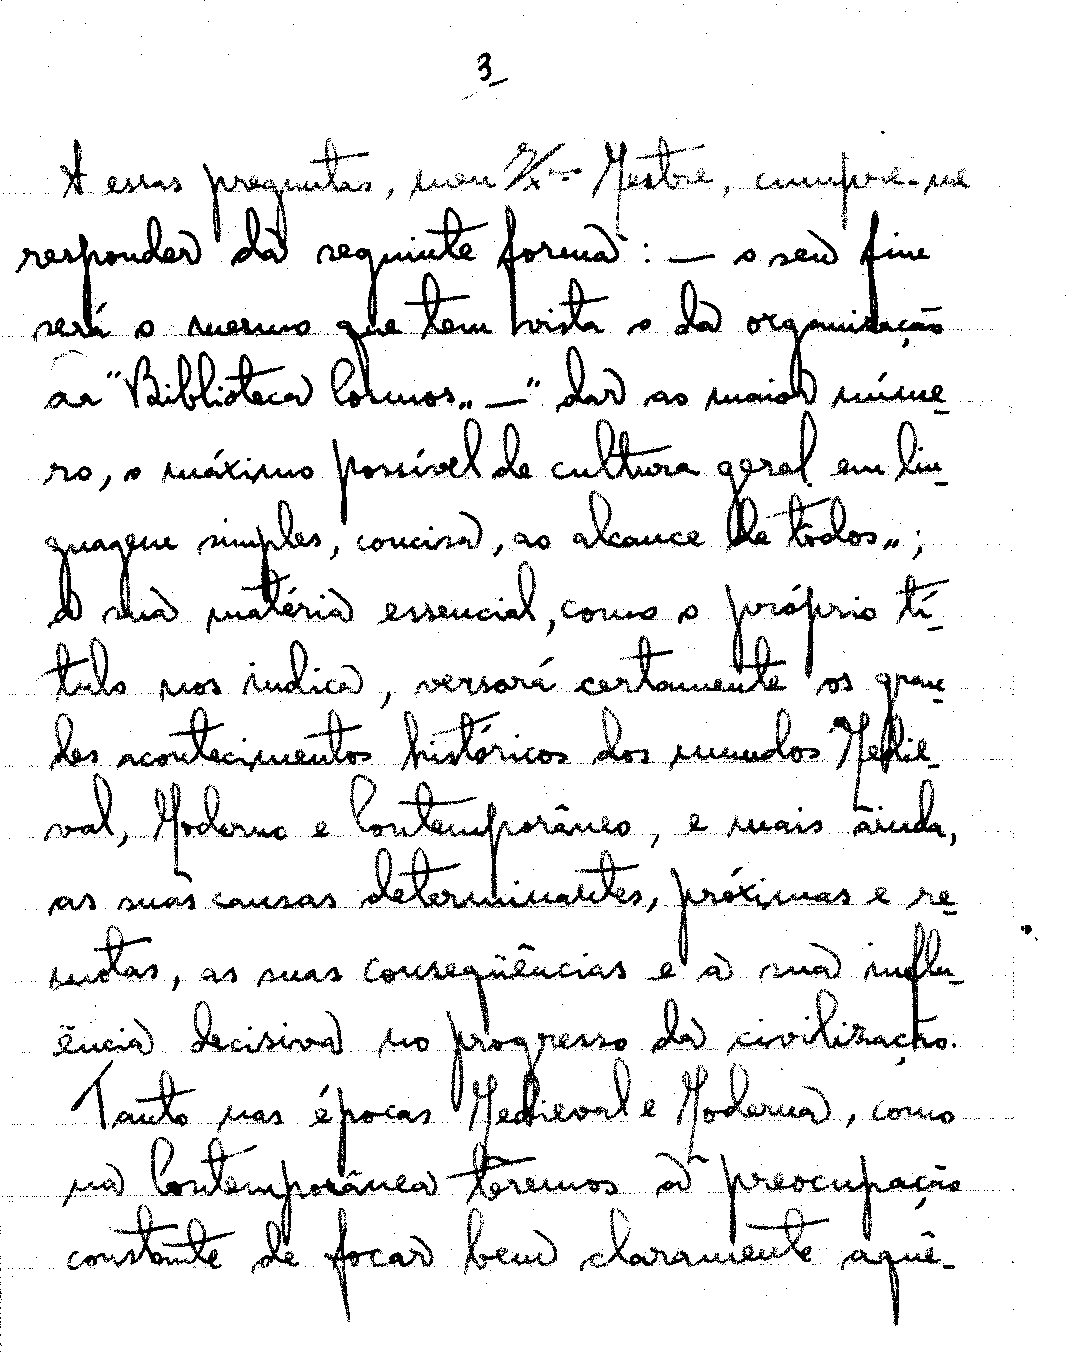 3
A essas preguntas, meu Mestre, cumpre-me
responder da seguinte forma: — o seu fim
será o mesmo que tem vista o da organização
da "Biblioteca Cosmos„ — "dar ao maior núme-
ro, o máximo possível de cultura geral em lin-
guagem simples, concisa, ao alcance de todos„;
a sua matéria essencial, como o próprio tí-
tulo nos indica, versará certamente os gran-
des acontecimentos históricos dos mundos Medie-
val, Moderno e Contemporâneo, e mais ainda,
as suas causas determinantes, próximas e re-
motas, as suas conseqüências e a sua influ-
ência decisiva no progresso da civilização.
Tanto nas épocas Medieval e Moderna, como
na Contemporânea teremos a preocupação
constante de focar bem claramente aquê-